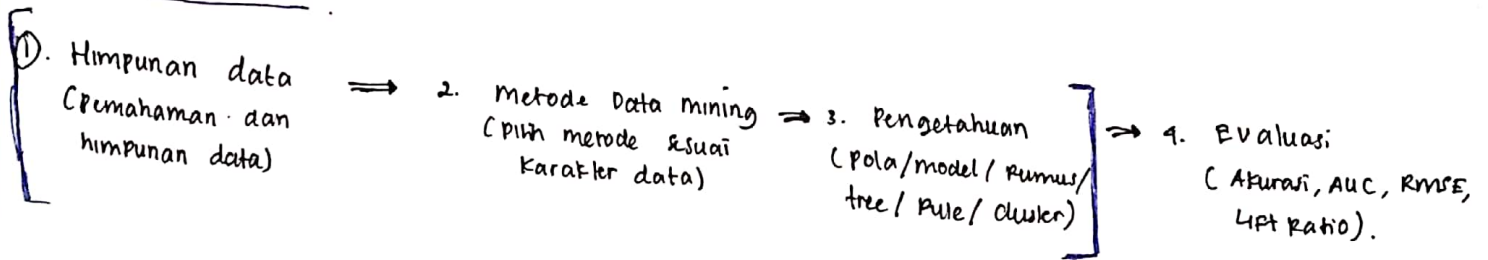 ①. Himpunan data
(pemahaman dan
himpunan data)
⇒
2. Metode Data mining
(pilih metode sesuai
karakter data)
→
3. Pengetahuan
(pola/model/Rumus/
tree/Rule/cluster)
→
4. Evaluasi
(Akurasi, AUC, RMSE,
Lift Ratio).